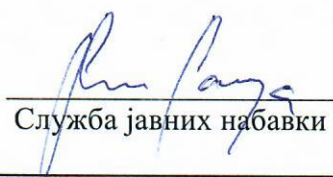 Служба јавних набавки